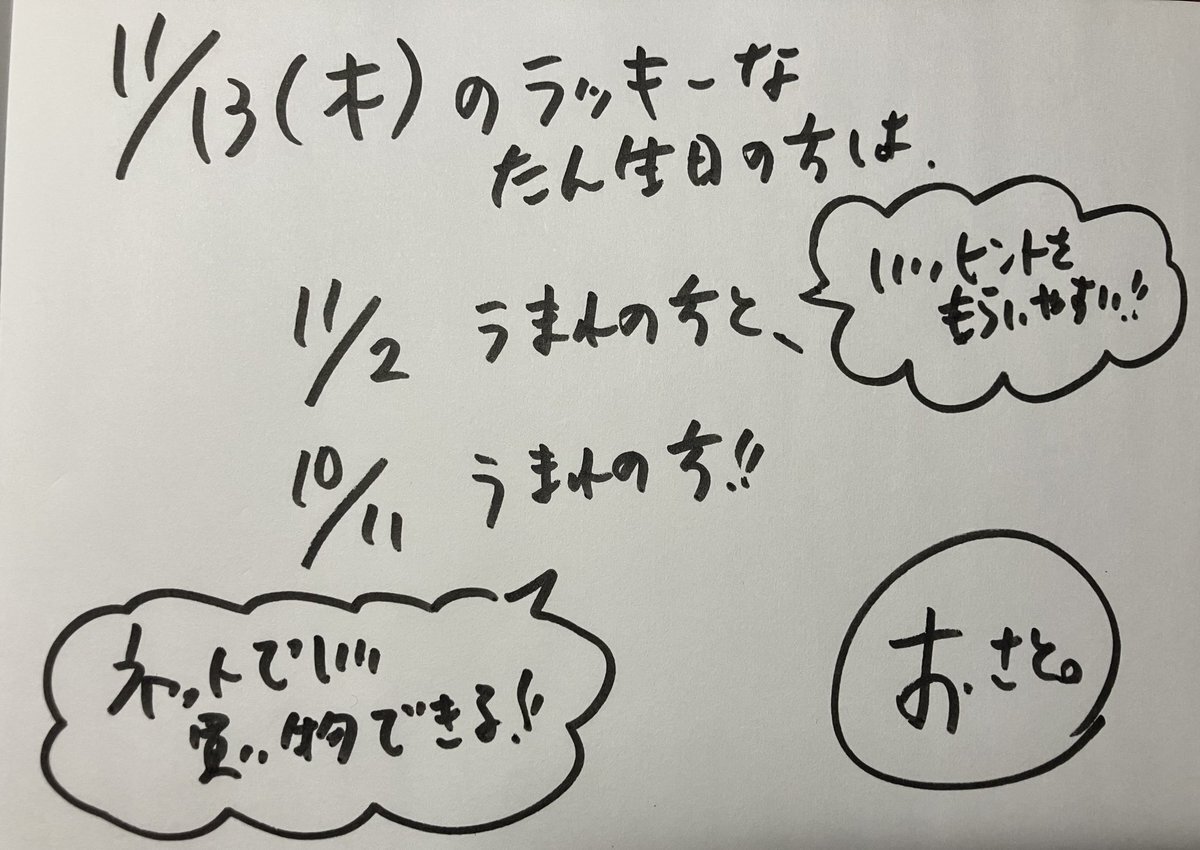 11/13(木)のラッキーな
たん生日の方は、
11/2 うまれの方と、
いいヒントを
もらいやすい!!
10/11 うまれの方!!
ネットでいい
買い物できる!!
お.さと。